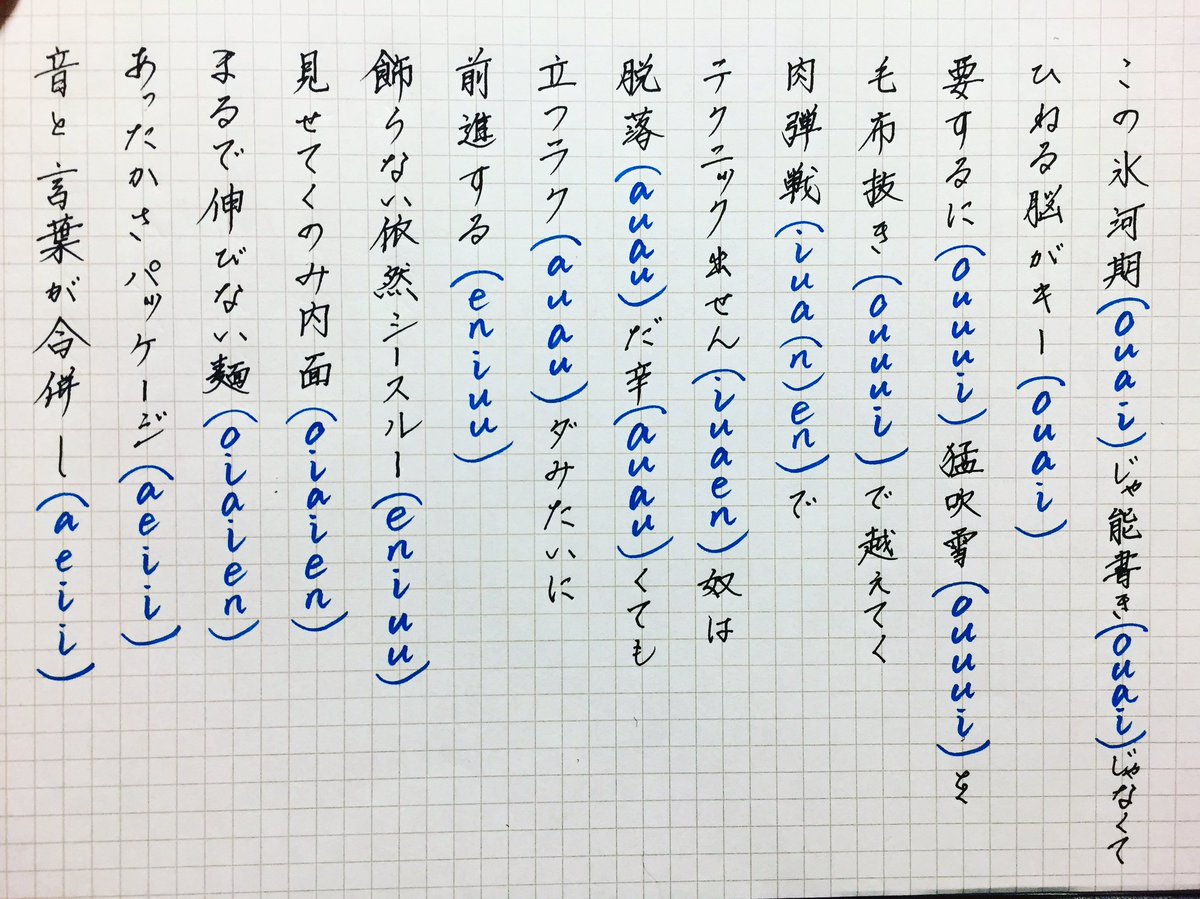 この氷河期(ouai)じゃ能書き(ouai)じゃなくて
ひねる脳がキー(ouai)
要するに(ouuui)猛吹雪(ouuui)を
毛布抜き(ouuui)で越えてく
肉弾戦(iua(n)en)で
テクニック出せん(iuaen)奴は
脱落(auau)だ辛(auau)くても
立つラク(auau)ダみたいに
前進する(eniuu)
飾らない依然シースルー(eniuu)
見せてくのみ内面(oiaien)
まるで伸びない麺(oiaien)
あったかさパッケージ(aeii)
音と言葉が合併し(aeii)